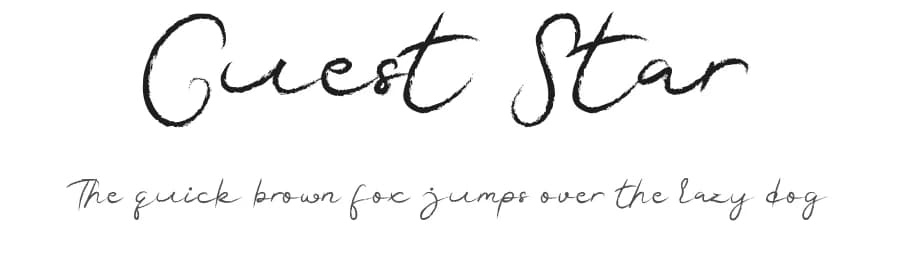 Guest Star
The quick brown fox jumps over the lazy dog